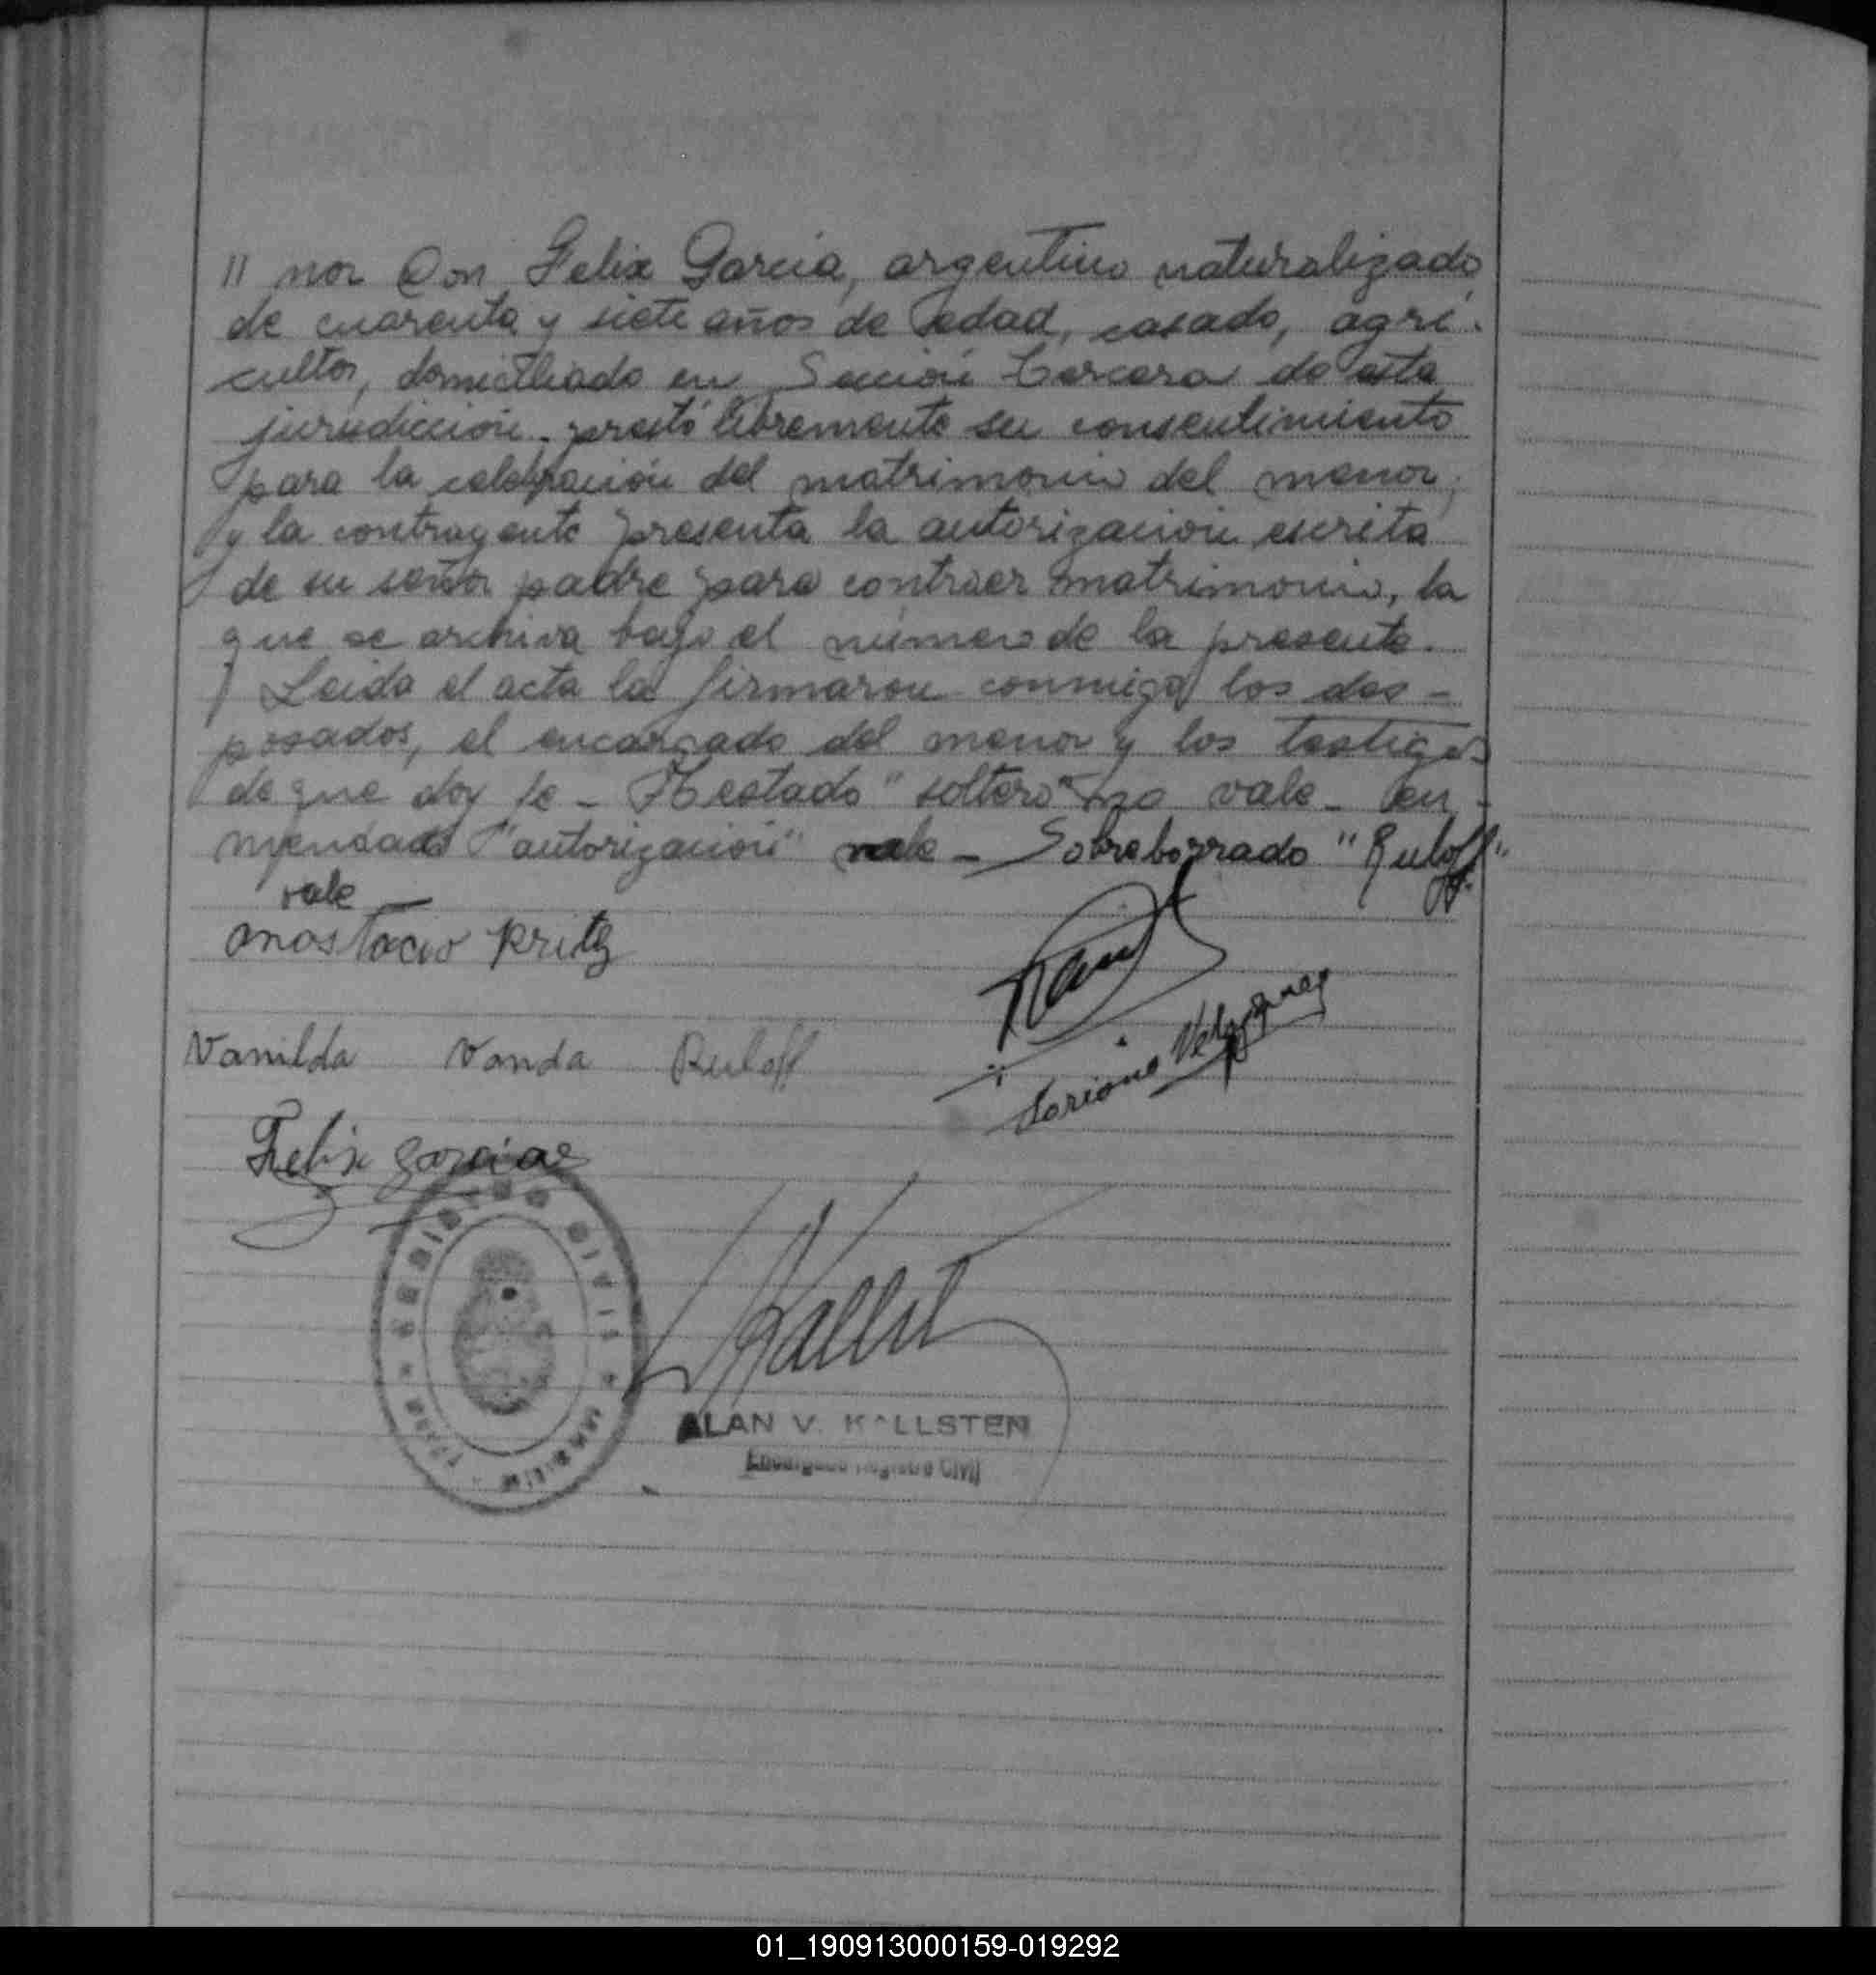 // nor Don Felix Garcia, argentino naturalizado
de cuarenta y siete años de edad, casado, agri-
cultor, domiciliado en Sección Tercera de esta
jurisdicción, prestó libremente su consentimiento
para la celebración del matrimonio del menor,
y la contrayente presenta la autorización escrita
de su señor padre para contraer matrimonio, la
que se archiva bajo el número de la presente.
Leida el acta la firmaron conmigo los des-
posados, el encargado del menor y los testigos
de que doy fe - Testado "soltero" no vale - en-
mendado "autorización" vale - Sobreborrado "Ruloff"
vale
Anastacio Kritz
Vanilda Vanda Ruloff
Velazquez
Felix Garcia
REGISTRO CIVIL
ALAN V. KALLSTEN
Encargado Registro Civil
01_190913000159-019292